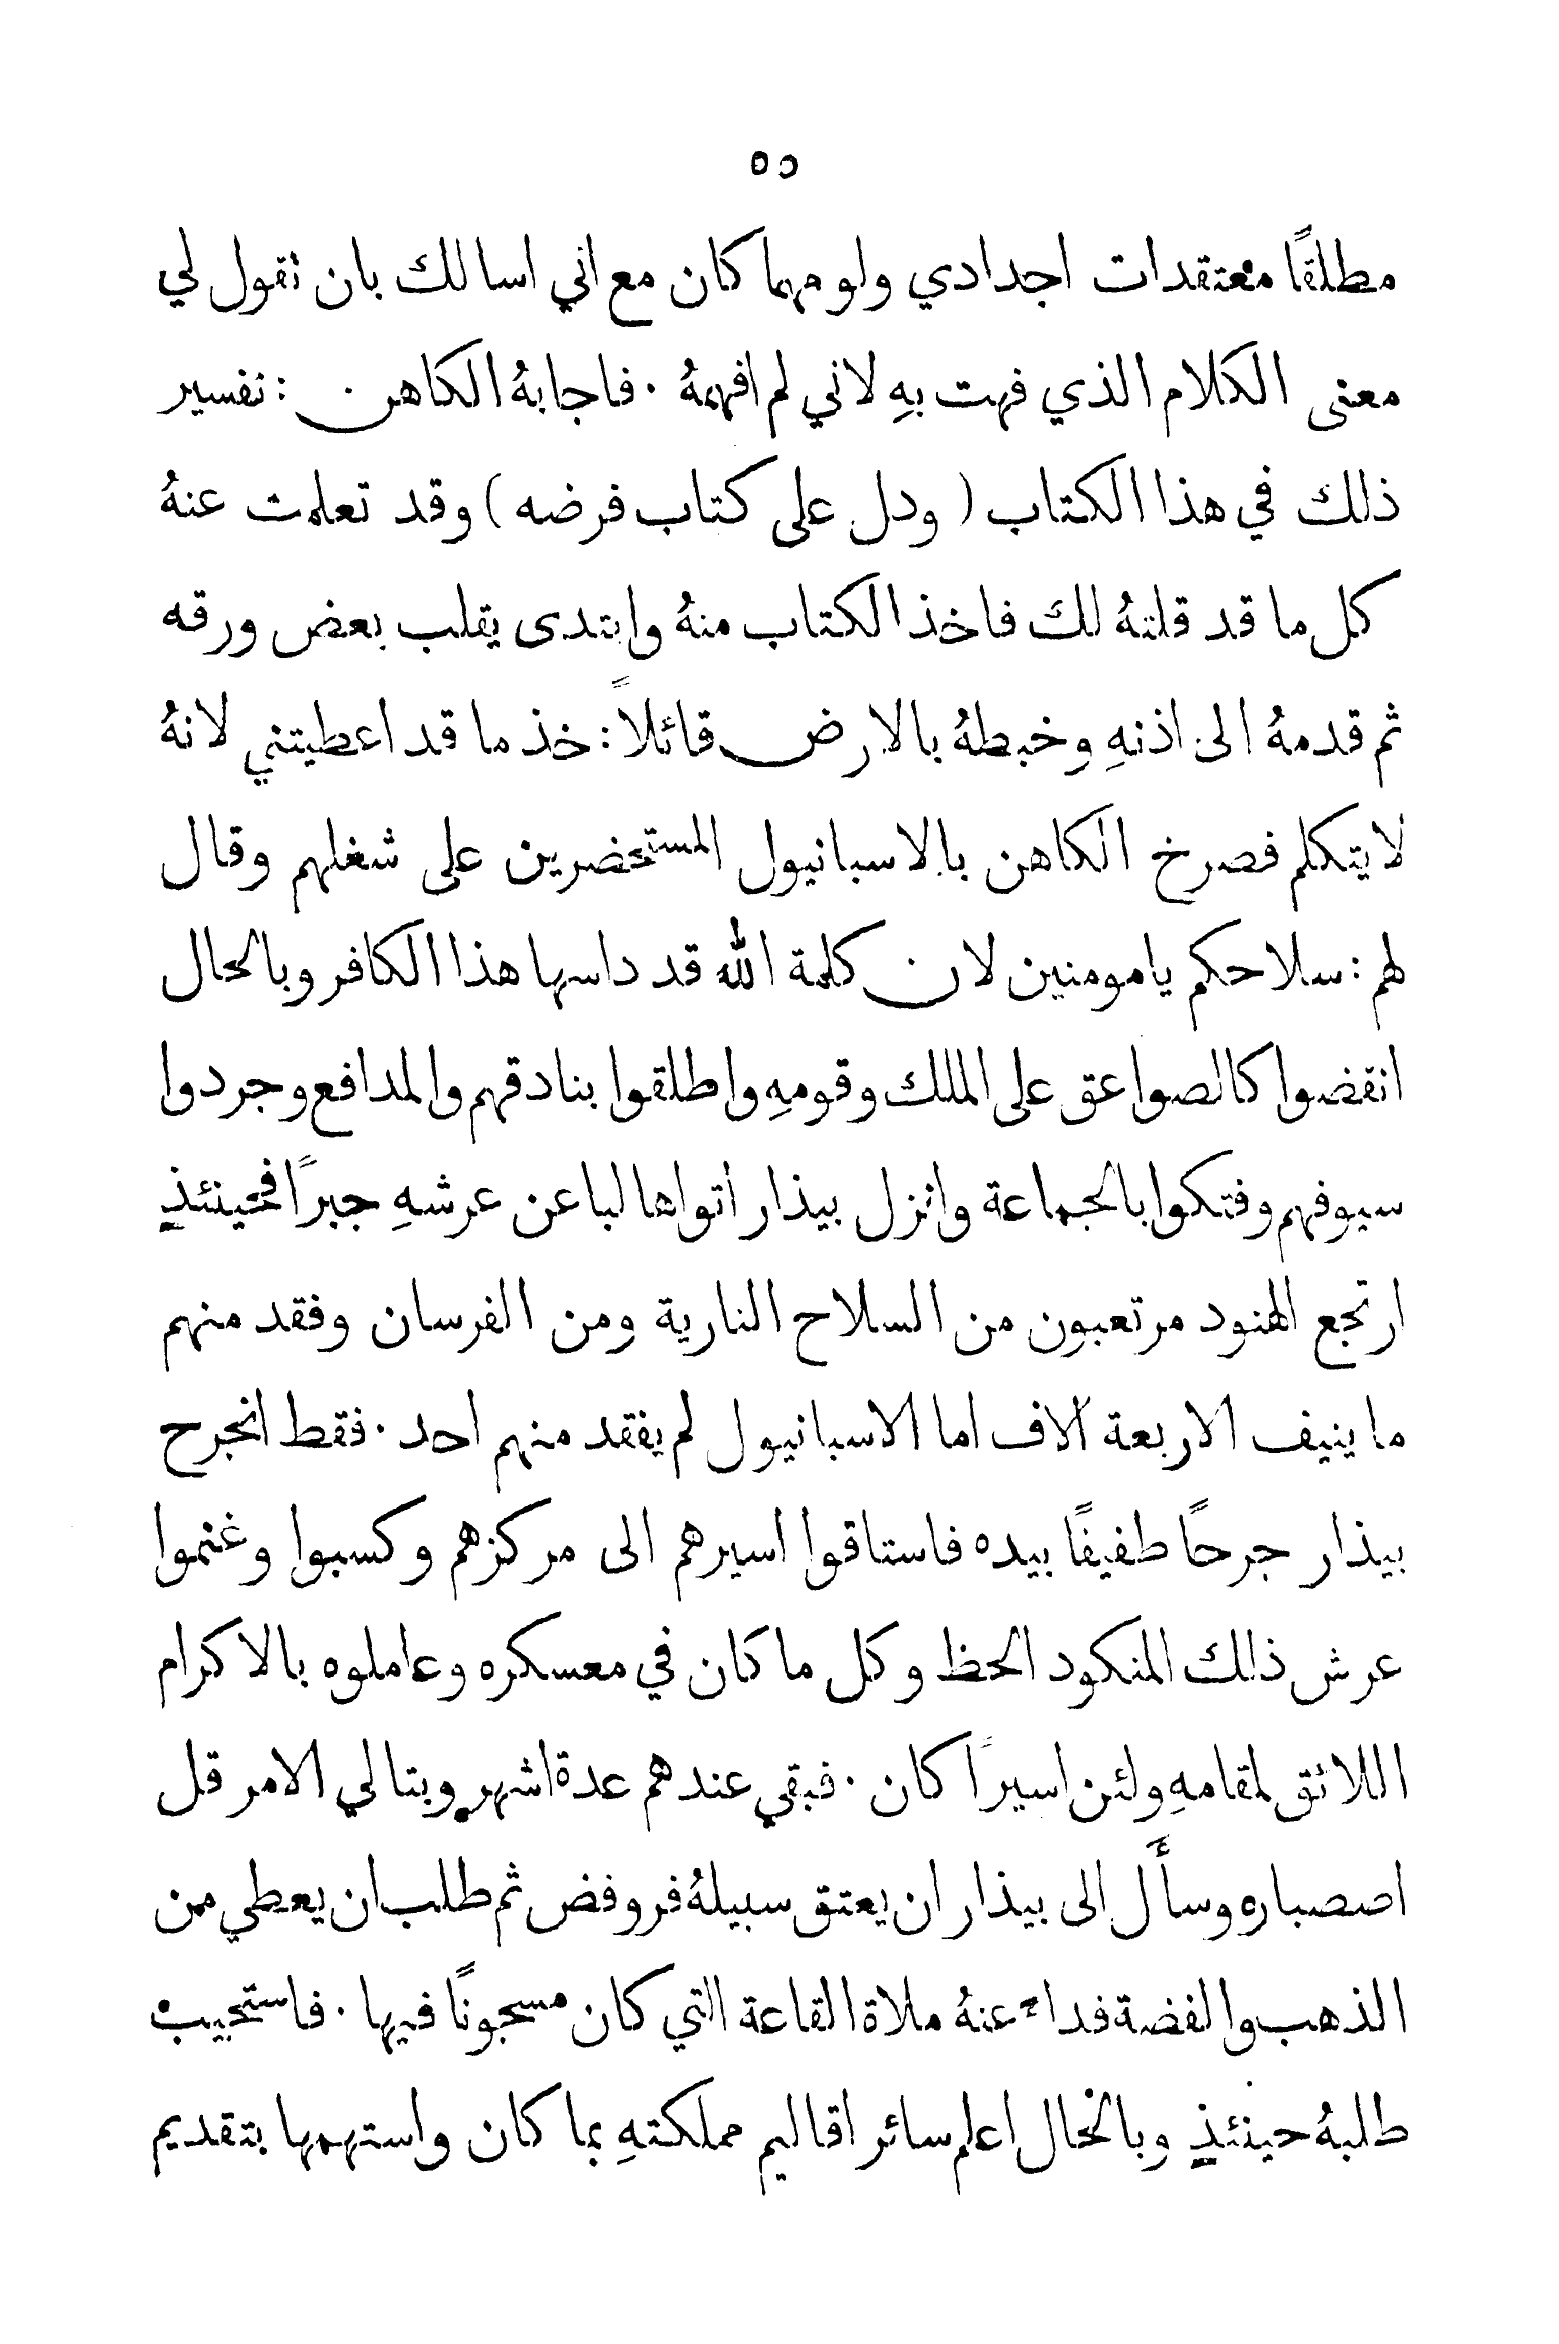 ٥٥
مطلقًا معتقدات اجدادي ولو مهما كان مع اني اسالك بان نقول لي
معنى الكلام الذي فهت بهِ لاني لم افهمهُ ٠ فاجابهُ الكاهن : نفسير
ذلك في هذا الكتاب ( ودل على كتاب فرضه ) وقد تعلمت عنهُ
كل ما قد قلتهُ لك فاخذ الكتاب منهُ وابتدى يقلب بعض ورقه
ثم قدمهُ الى اذنهِ وخبطهُ بالارض قائلاً : خذ ما قد اعطيتني لانهُ
لا يتكلم فصرخ الكاهن بالاسبانيول المستحضرين على شغلهم وقال
لهم : سلاحكم يامومنين لان كلمة الله قد داسها هذا الكافر وبالحال
انقضوا كالصواعق على الملك وقومهِ واطلقوا بنادقهم والمدافع وجردوا
سيوفهم وفتكوا بالجماعة وانزل بيذار اتواهالبا عن عرشهِ جبرًا فحينئذٍ
ارتجع الهنود مرتعبون من السلاح النارية ومن الفرسان وفقد منهم
ما ينيف الاربعة آلاف اما الاسبانيول لم يفقد منهم احد ٠ فقط انجرح
بيذار جرحًا طفيفًا بيده فاستاقوا اسيرهم الى مركزهم وكسبوا وغنموا
عرش ذلك المنكود الحظ وكل ما كان في معسكره وعاملوه بالاكرام
اللائق لمقامهِ ولئن اسيرًا كان ٠ فبقي عندهم عدة اشهر وبتالي الامر قل
اصصباره وسأَل الى بيذار ان يعتق سبيلهُ فروفض ثم طلب ان يعطي من
الذهب والفضة فداء عنهُ ملاة القاعة التي كان مسجونًا فيها ٠ فاستجيب
طلبهُ حينئذٍ وبالخال اعلم سائر اقاليم مملكتهِ بما كان واستهمها بتقديم